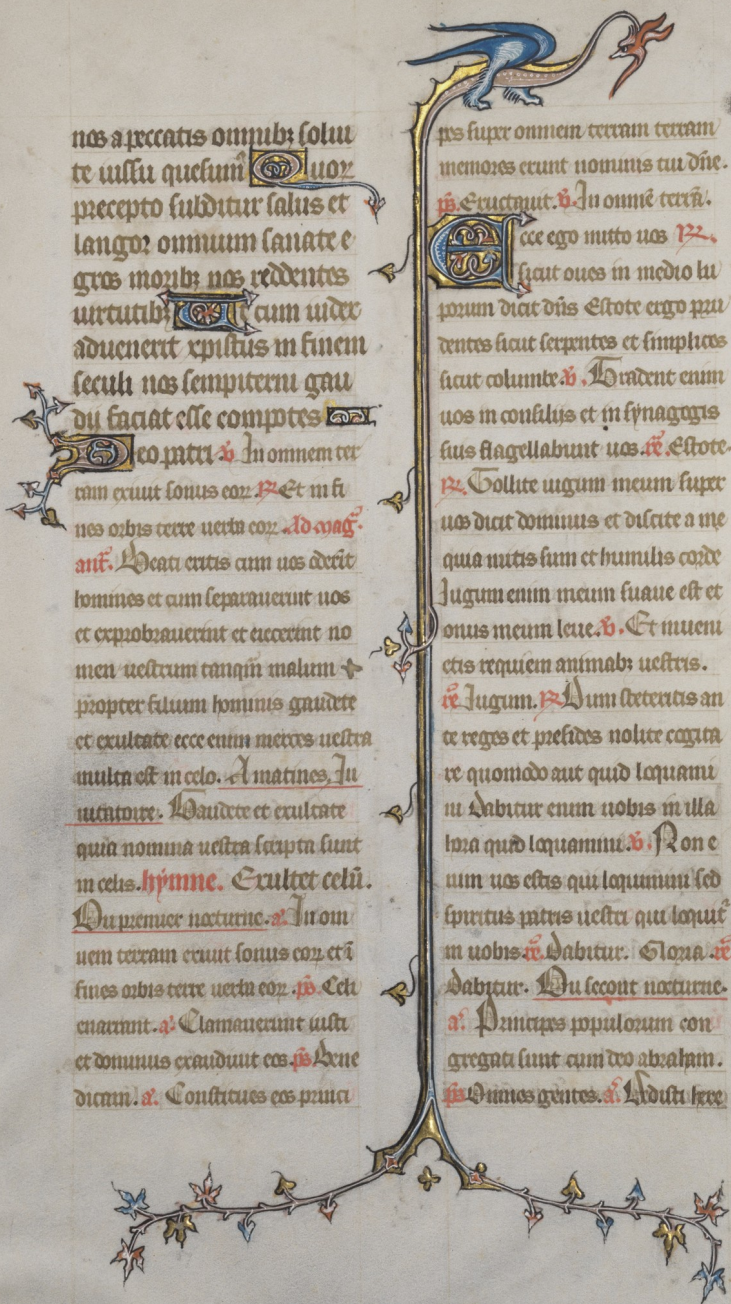 nos a peccatis omnibꝫ solui
te iussu quesumꝰ Quoꝝ
precepto subditur salus et
langor omnium sanate e
gros moribꝫ nos reddentes
uirtutibꝫ Ut cum iudex
aduenerit xpistus in finem
seculi nos sempiterni gau
dij faciat esse compotes
Deo patri v̄. In omnem ter
ram exiuit sonus eoꝝ ℞ Et in fi
nes orbis terre uerba eoꝝ. Ad mag̃.
anẽ. Beati eritis cum uos oderĩt
homines et cum separauerint uos
et exprobrauerint et eiecerint no
men uestrum tanq̃m malum
propter filium hominis gaudete
et exultate ecce enim merces uestra
multa est in celo. A matines, In
uitatoire. Gaudete et exultate
quia nomina uestra scripta sunt
in celis. hymne. Exultet celũ.
Du premier nocturne. a̾. In om
nem terram exiuit sonus eoꝝ et ĩ
fines orbis terre uerba eoꝝ. p̄s. Celi
enarrant. a̾. Clamauerunt iusti
et dominus exaudiuit eos. p̄s Bene
dicam. a̾. Constitues eos princi
pes super omnem terram terram
memores erunt nominis tui dñe.
p̄s. Eructauit. v̄. In omnẽ terrã.
Ecce ego mitto uos ℞.
sicut oues in medio lu
porum dicit dñs Estote ergo pru
dentes sicut serpentes et simplices
sicut columbe. v̄. Tradent enim
uos in consilijs et in synagogis
suis flagellabunt uos. rẽ. Estote.
℞. Tollite iugum meum super
uos dicit dominus et discite a me
quia mitis sum et humilis corde
Iugum enim meum suaue est et
onus meum leue. v̄. Et inueni
etis requiem animabꝫ uestris.
rẽ Iugum. ℞ Dum steteritis an
te reges et presides nolite cogita
re quomodo aut quid loquami
ni Dabitur enim uobis in illa
hora quid loquamini. v̄. Non e
nim uos estis qui loquimini sed
spiritus patris uestri qui loquit᷑
in uobis. rẽ. Dabitur. Gloria. rẽ
Dabitur. Du secont nocturne.
a̾. Principes populorum con
gregati sunt cum deo abraham.
p̄s Omnes gentes. a̾. Dedisti here